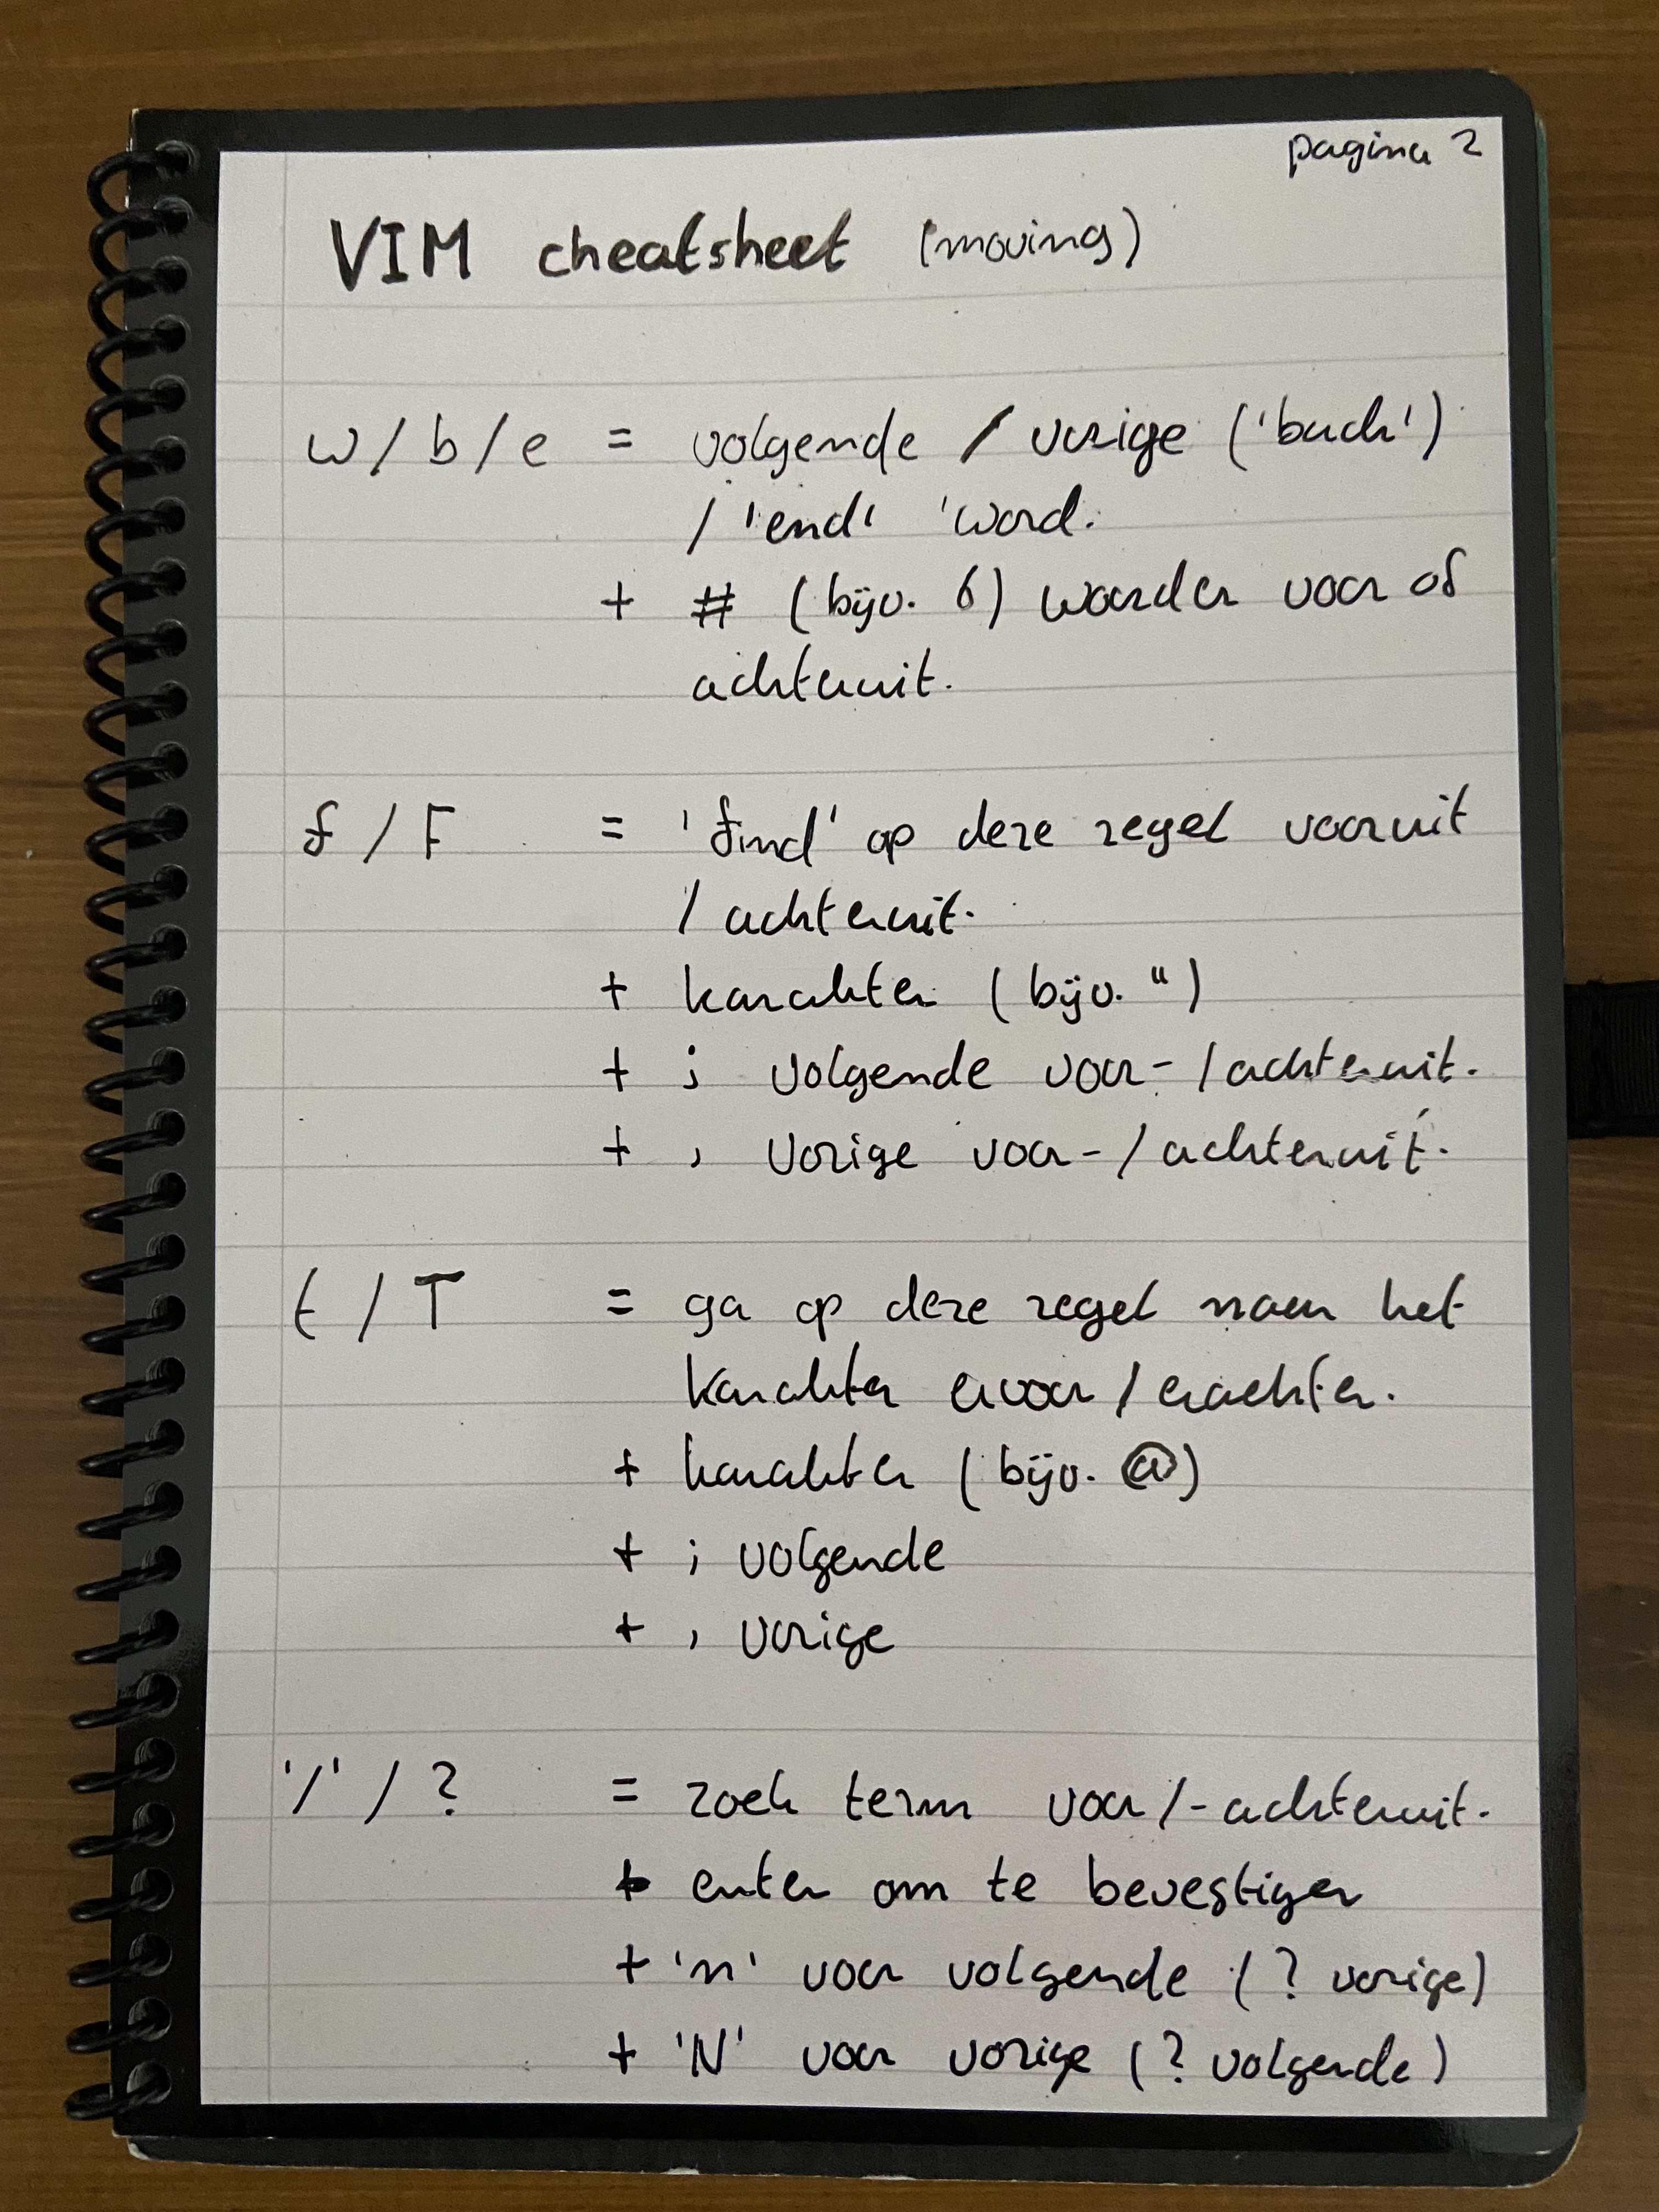 pagina 2
VIM cheatsheet (moving)
w / b / e = volgende / vorige ('back')
/ 'end' 'word.
+ # (bijv. 6) woorden voor of
achteruit.
f / F = 'find' op deze regel vooruit
/ achteruit.
+ karakter (bijv. ")
+ ; volgende voor- / achteruit.
+ , vorige voor- / achteruit.
t / T = ga op deze regel naar het
karakter ervoor / erachter.
+ karakter (bijv. @)
+ ; volgende
+ , vorige
'/' / ? = zoek term voor/-achteruit.
+ enter om te bevestigen
+ 'n' voor volgende (? vorige)
+ 'N' voor vorige (? volgende)